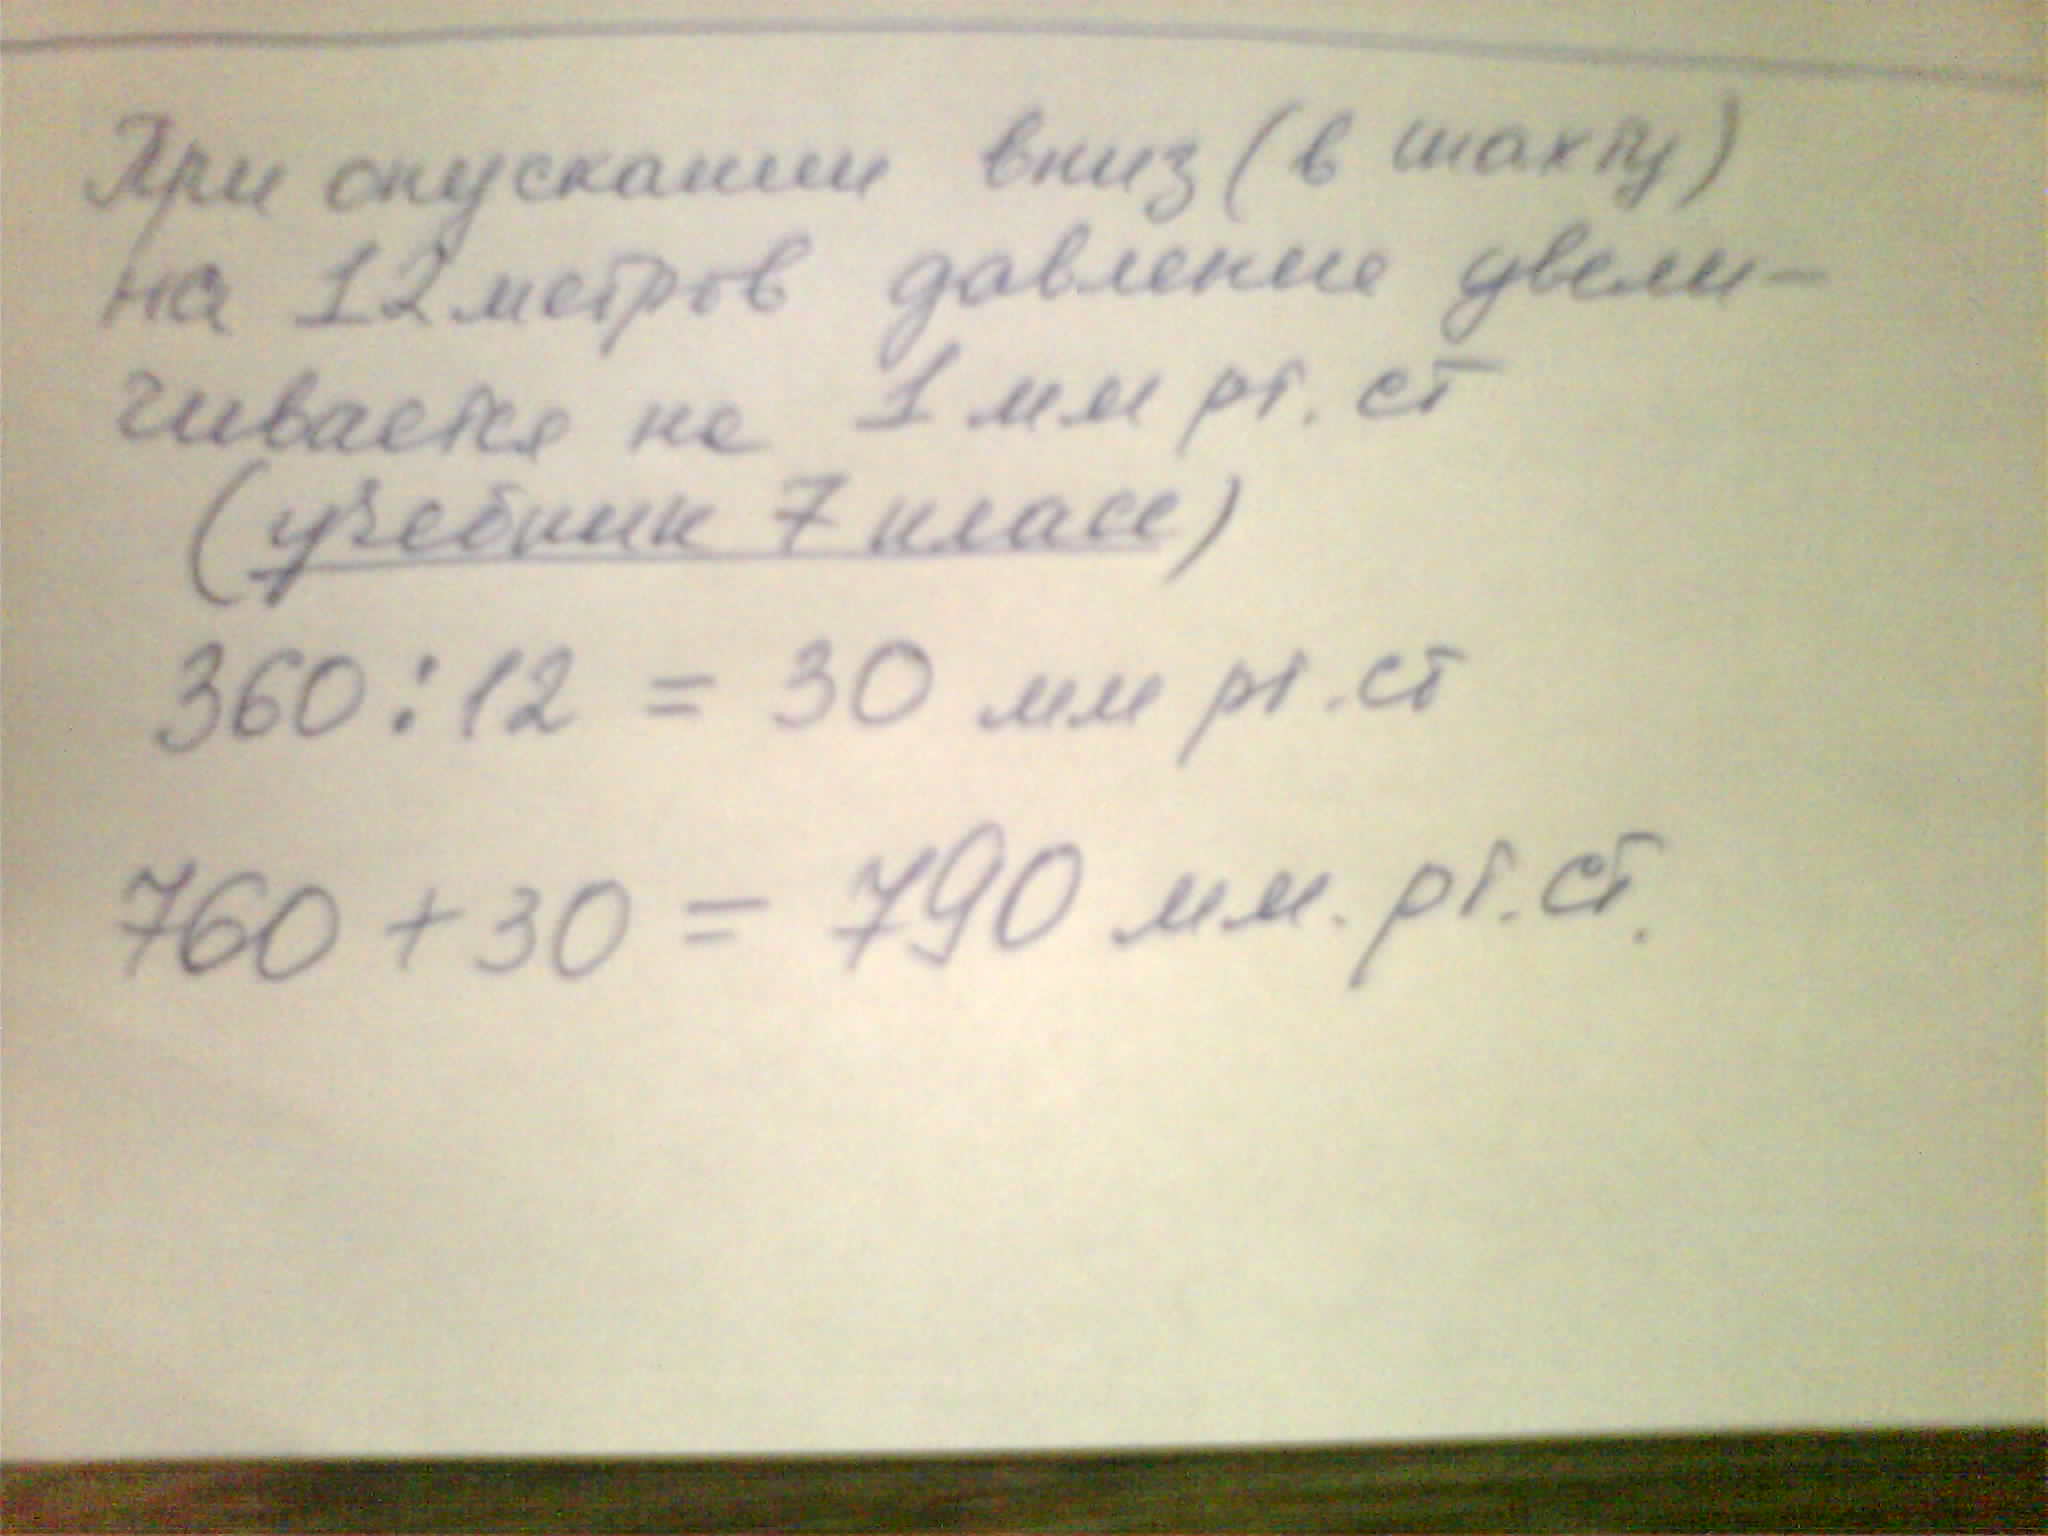 При опускании вниз (в шахту)
на 12 метров давление увели-
чивается на 1 мм рт. ст
(учебник 7 класс)
360 : 12 = 30 мм рт. ст
760 + 30 = 790 мм. рт. ст.